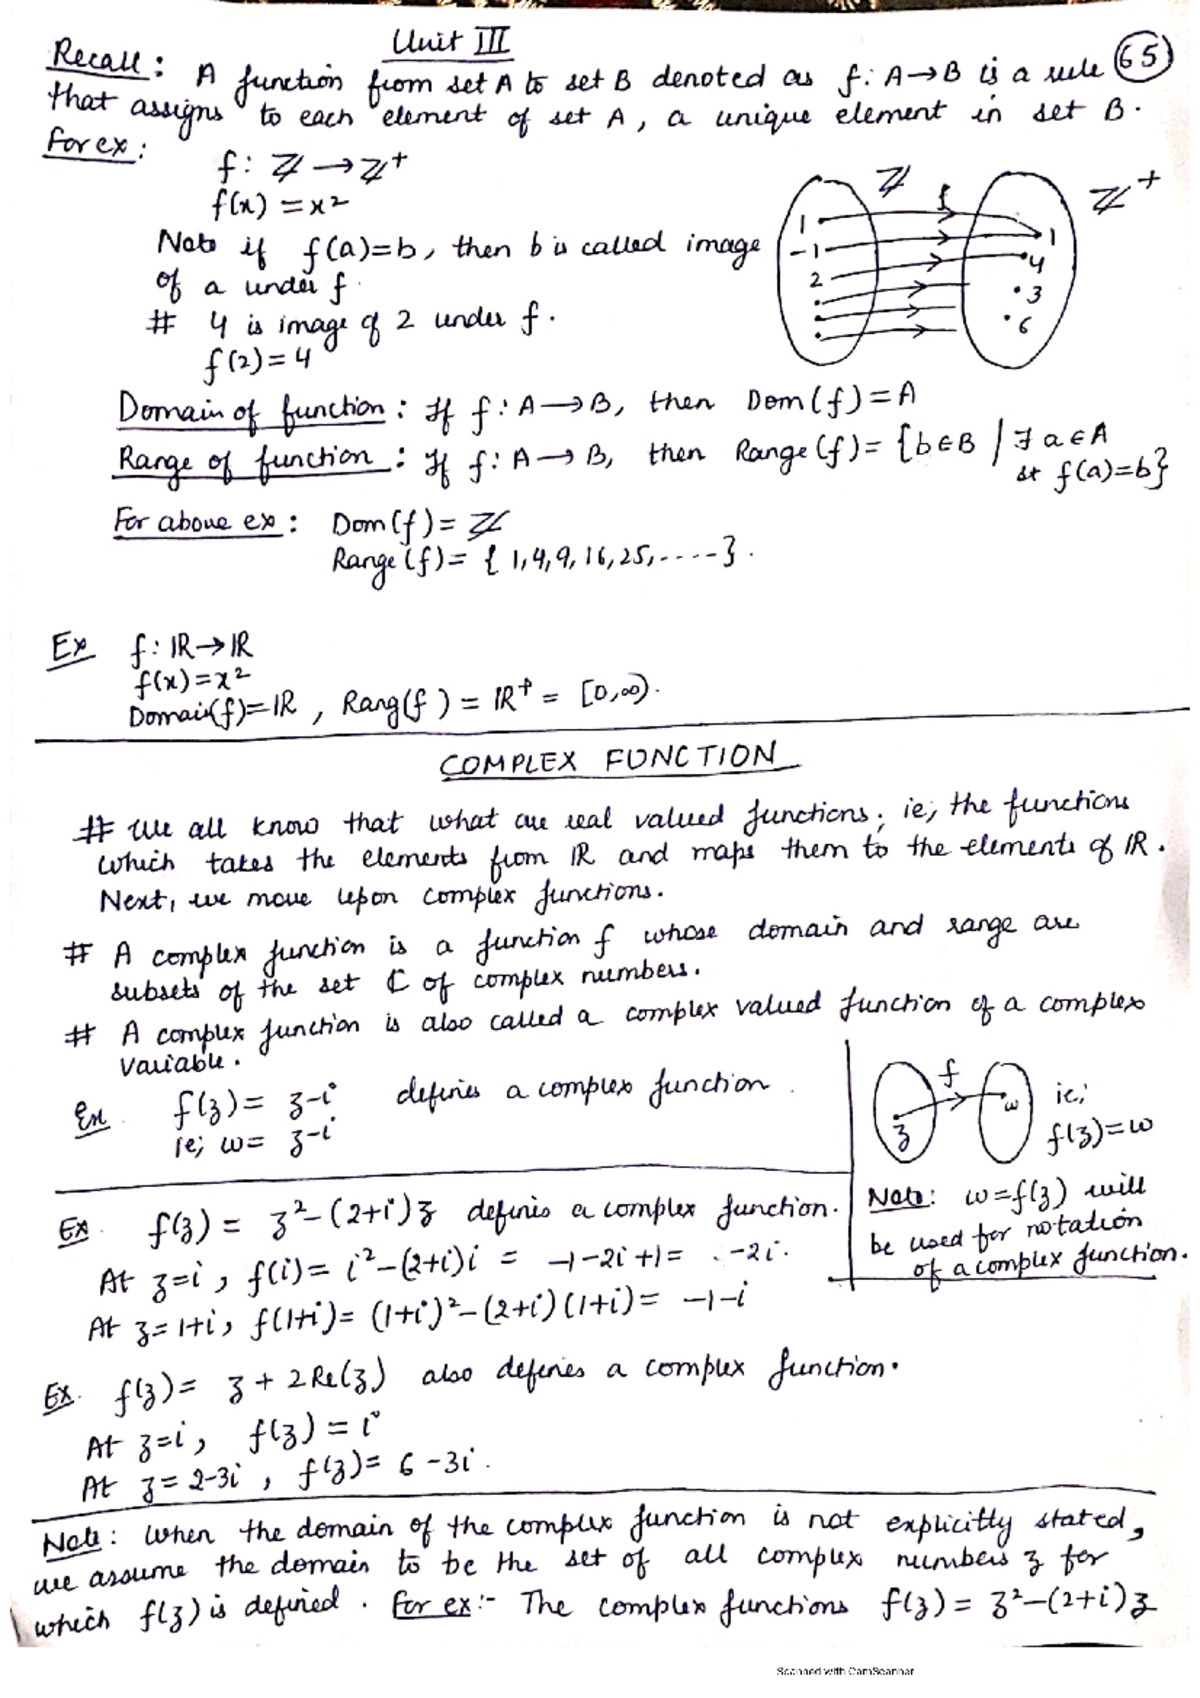 Unit III
65
Recall: A function from set A to set B denoted as f: A→B is a rule
that assigns to each element of set A, a unique element in set B.
For ex:
f: ℤ → ℤ+
f(x) = x²
Note if f(a)=b, then b is called image
of a under f.
# 4 is image of 2 under f.
f(2) = 4
ℤ f ℤ+
1
-1
2
1
4
3
6
Domain of function: If f: A→B, then Dom(f) = A
Range of function: If f: A→B, then Range(f) = {b∈B / ∃ a∈A
st f(a)=b}
For above ex: Dom(f) = ℤ
Range(f) = {1,4,9,16,25,-----}.
Ex f: ℝ→ℝ
f(x) = x²
Domain(f)=ℝ, Rang(f) = ℝ+ = [0,∞).
COMPLEX FUNCTION
# We all know that what are real valued functions; ie; the functions
which takes the elements from ℝ and maps them to the elements of ℝ.
Next, we move upon complex functions.
# A complex function is a function f whose domain and range are
subsets of the set ℂ of complex numbers.
# A complex function is also called a complex valued function of a complex
variable.
Ex f(z) = z-i defines a complex function.
ie; w = z-i
f
z w ie;
f(z)=w
Note: w=f(z) will
be used for notation
of a complex function.
Ex. f(z) = z²-(2+i)z defines a complex function.
At z=i, f(i) = i²-(2+i)i = -1-2i+1 = -2i.
At z=1+i, f(1+i) = (1+i)²-(2+i)(1+i) = -1-i
Ex. f(z) = z + 2Re(z) also defines a complex function.
At z=i, f(z) = i
At z=2-3i, f(z) = 6-3i.
Note: When the domain of the complex function is not explicitly stated,
we assume the domain to be the set of all complex numbers z for
which f(z) is defined. For ex:- The complex functions f(z) = z²-(2+i)z
Scanned with CamScanner